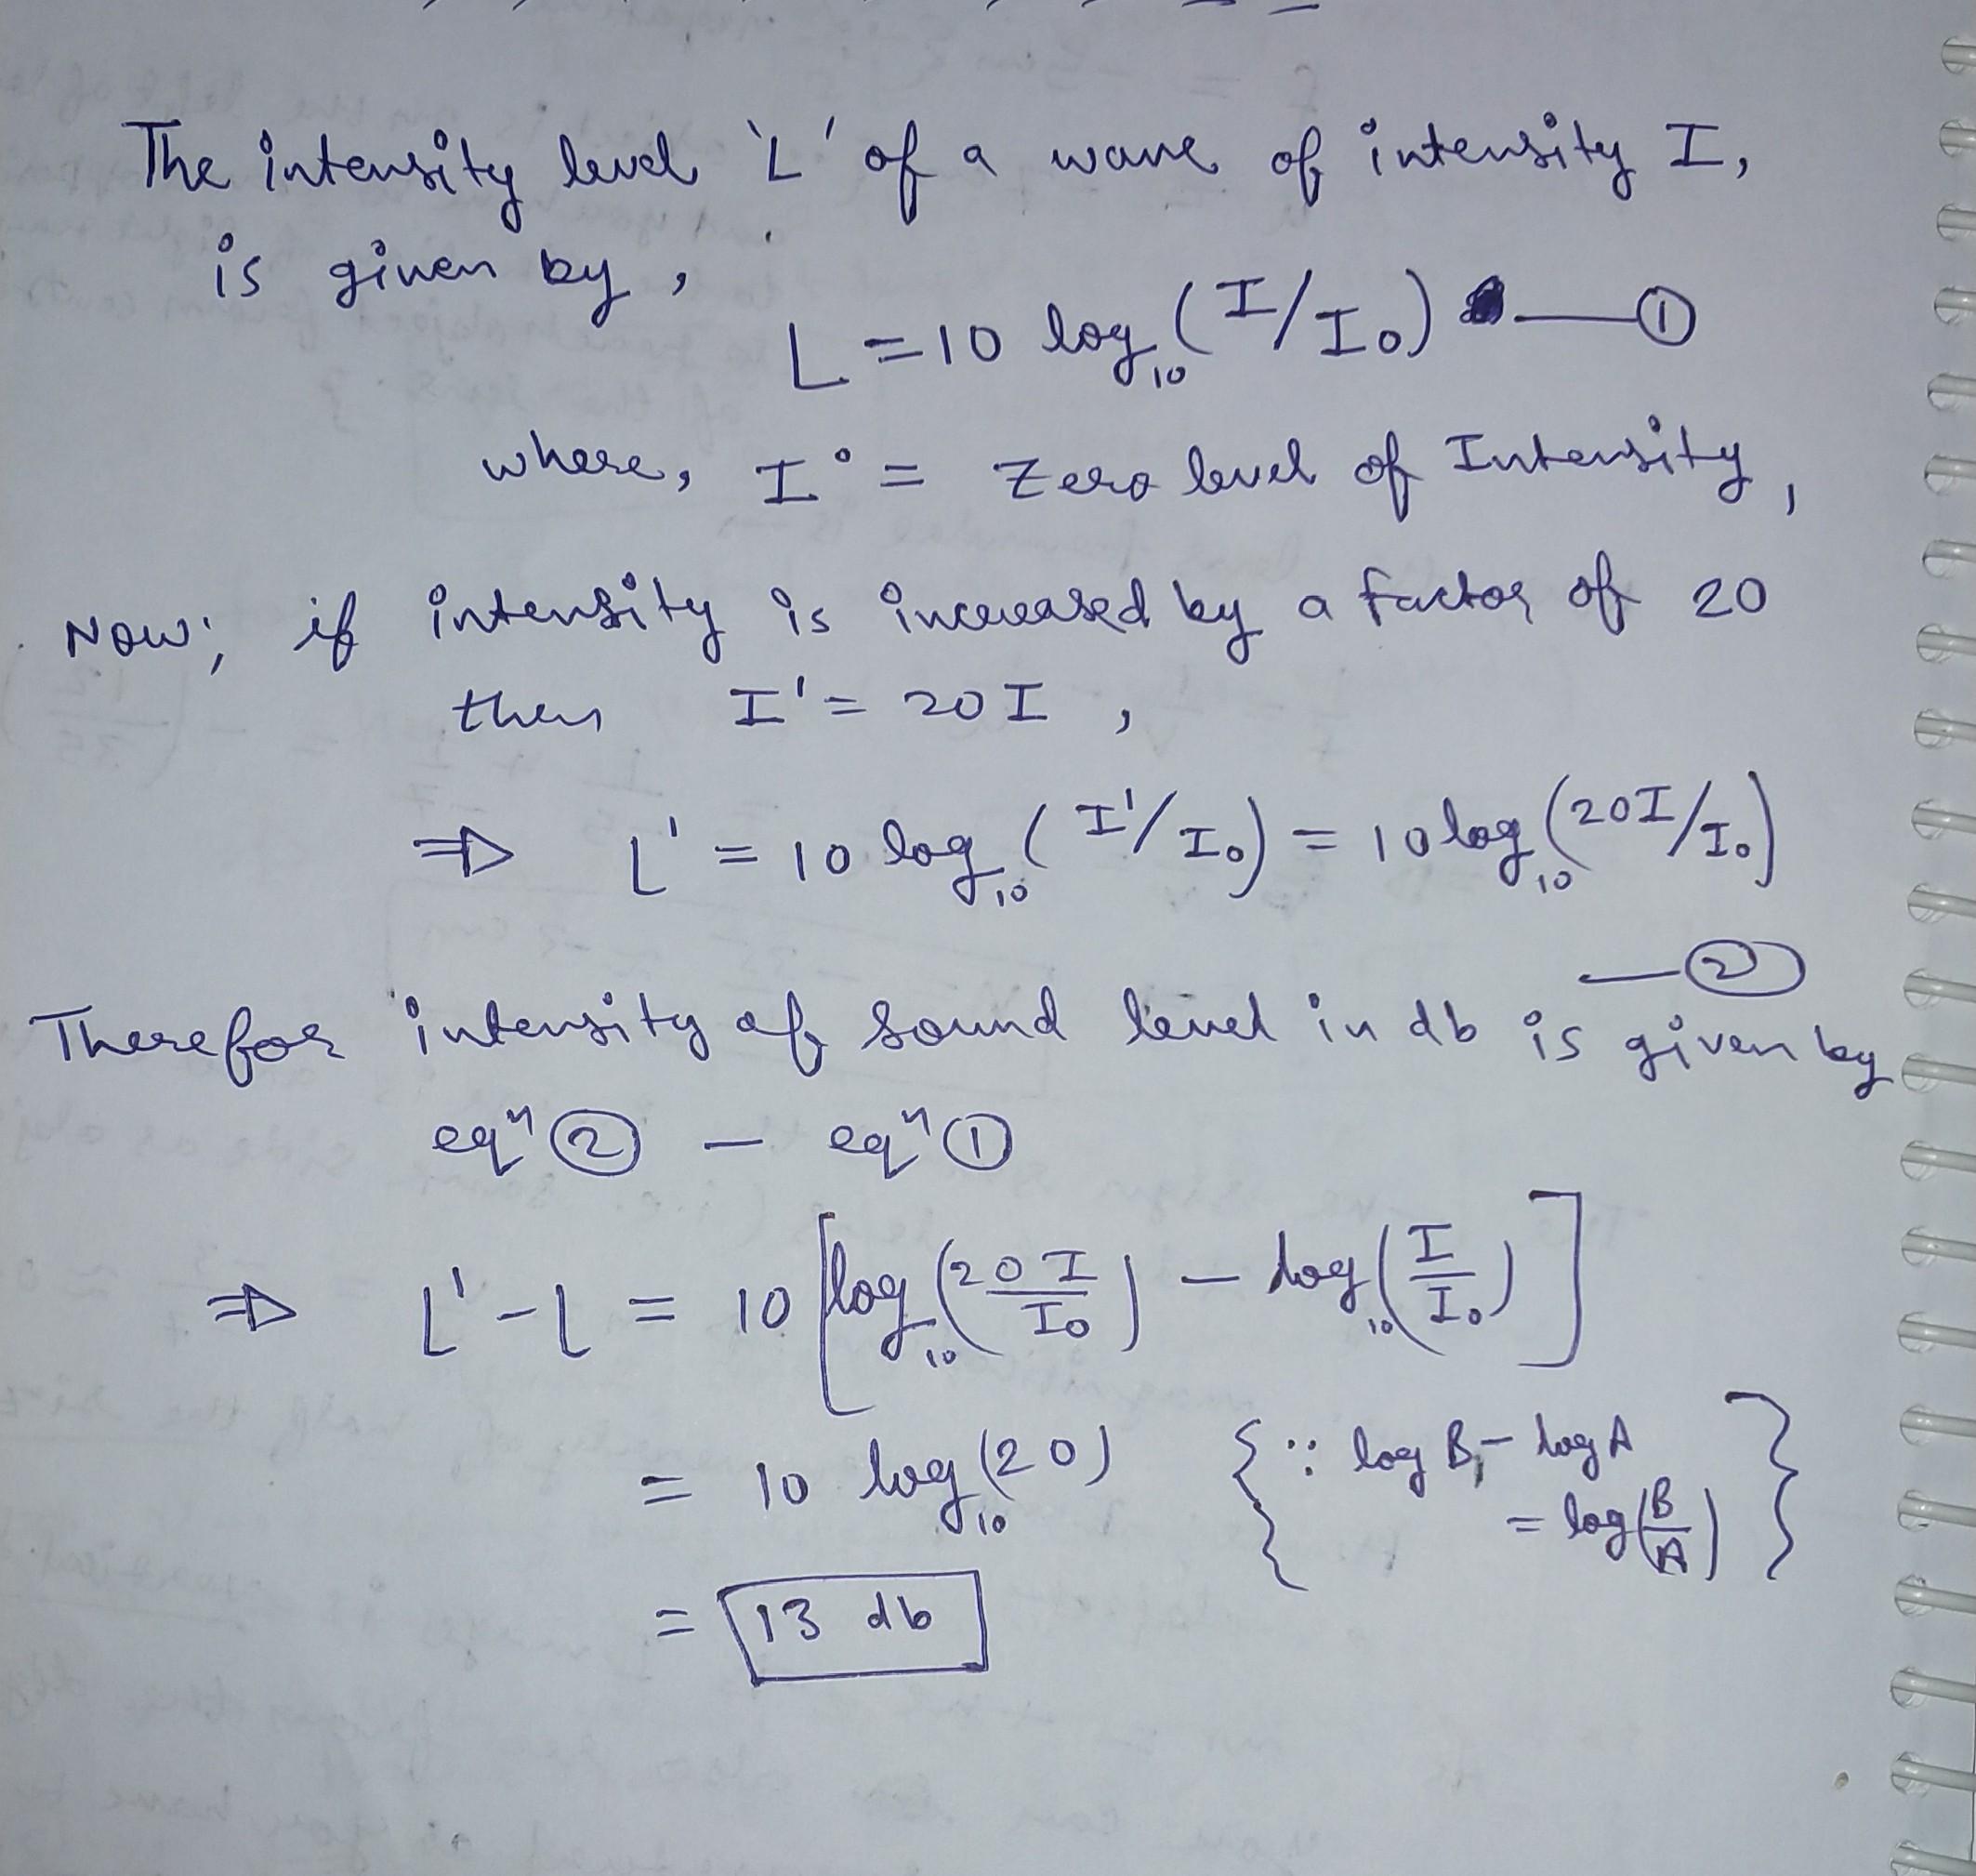 The intensity level 'L' of a wave of intensity I,
is given by,
L = 10 log₁₀ (I/I₀) — ①
where, I° = Zero level of Intensity,
Now; if intensity is increased by a factor of 20
then I' = 20 I ,
⇒ L' = 10 log₁₀ (I'/I₀) = 10 log₁₀ (20I/I₀)
— ②
Therefor intensity of sound level in db is given by
eqⁿ ② — eqⁿ ①
⇒ L' - L = 10 [log₁₀ (20 I/I₀) - log₁₀ (I/I₀)]
= 10 log₁₀ (20) {∵ log B - log A
= log (B/A)}
= 13 db